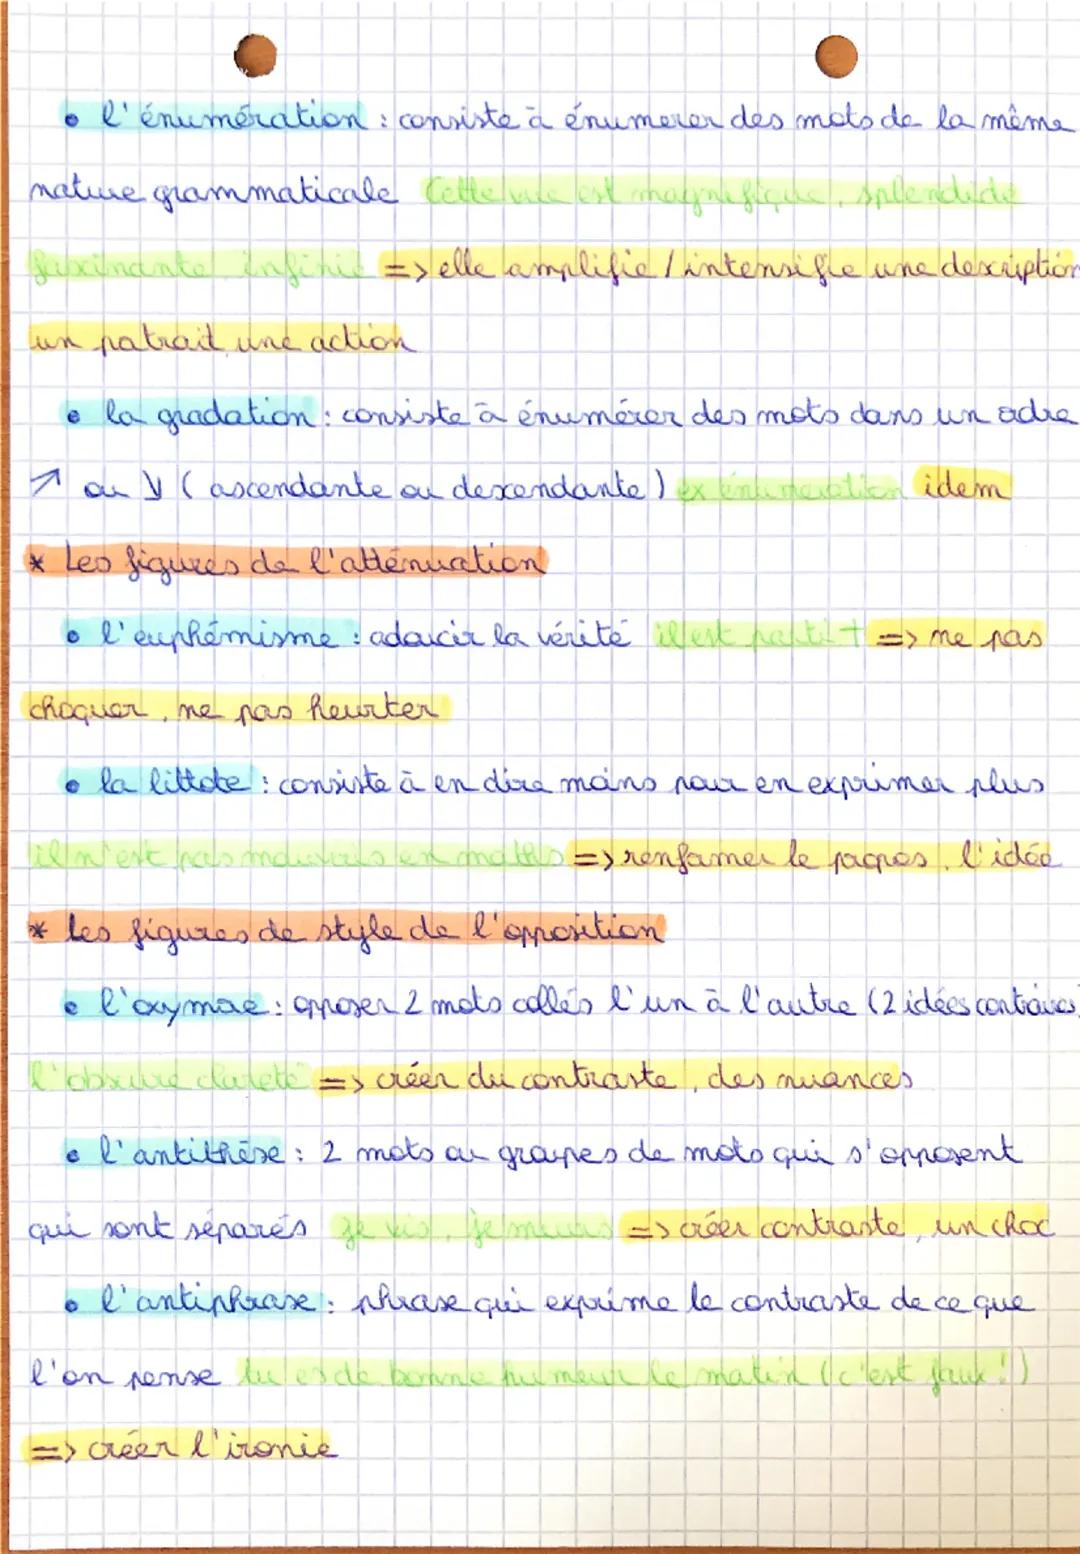 • l'énumération : consiste à énumerer des mots de la même
nature grammaticale Cette vue est magnifique, splendide
fascinante, infinie => elle amplifie / intensifie une description
un portrait, une action
• la gradation : consiste à énumérer des mots dans un ordre
↗ ou ↘ ( ascendante ou descendante ) ex énumération idem
* Les figures de l'atténuation
• l'euphémisme : adoucir la vérité il est parti † => ne pas
choquer, ne pas heurter
• la littote : consiste à en dire moins pour en exprimer plus
il n'est pas mauvais en maths => renformer le propos, l'idée
* Les figures de style de l'opposition
• l'oxymore : opposer 2 mots collés l'un à l'autre (2 idées contraires)
l'obscure clareté => créer du contraste, des nuances
• l'antithèse : 2 mots ou groupes de mots qui s'opposent
qui sont séparés je vis, je meurs => créer contraste, un choc
• l'antiphrase : phrase qui exprime le contraste de ce que
l'on pense tu es de bonne humeur le matin (c'est faux!)
=> créer l'ironie